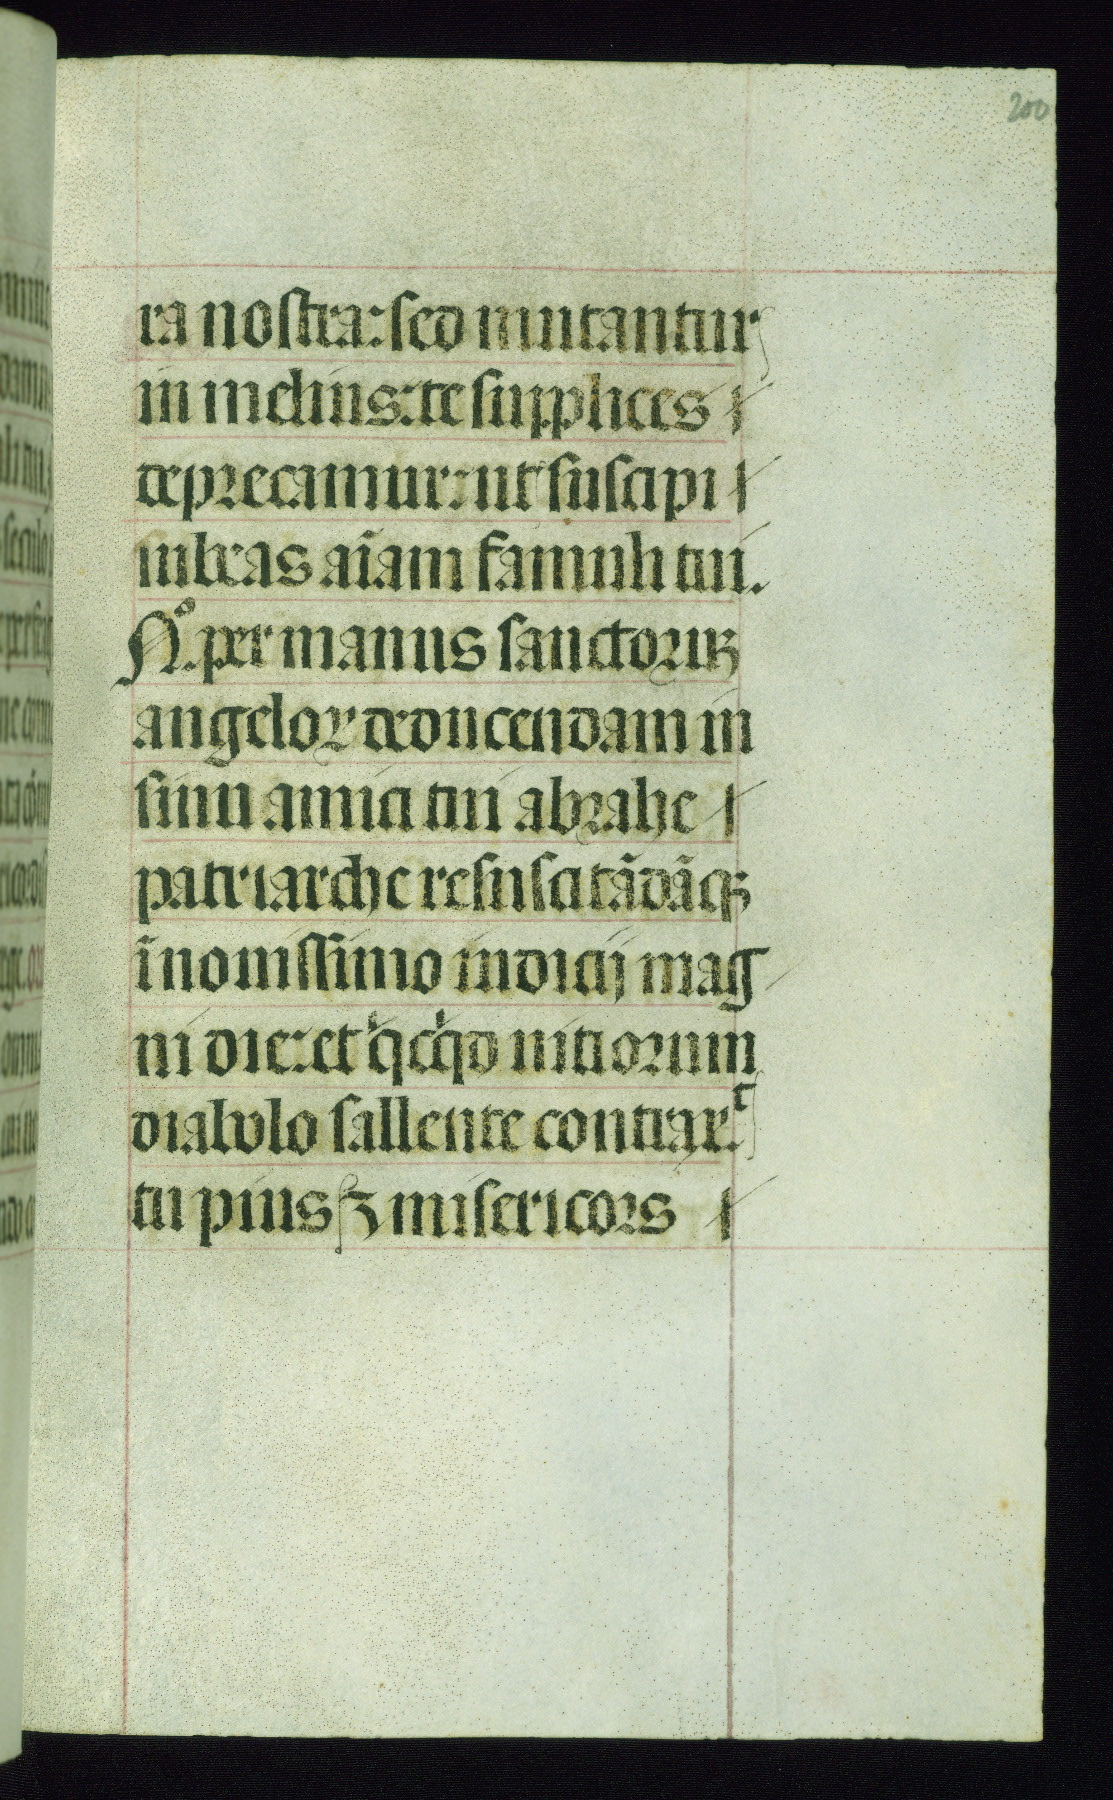 200
ra nostra: sed mutantur
in melius: te supplices
deprecamur: ut suscipi
iubeas aīam famuli tui.
Nº. per manus sanctoruꝫ
angeloꝝ deducendam in
sinu amici tui abrahe
patriarche resuscitādāqꝫ
ī nouissimo iudicij mag
ni die: et qͥcqͥd uitiorum
diabolo fallente contrax͛.
tu pius ꝫ misericors